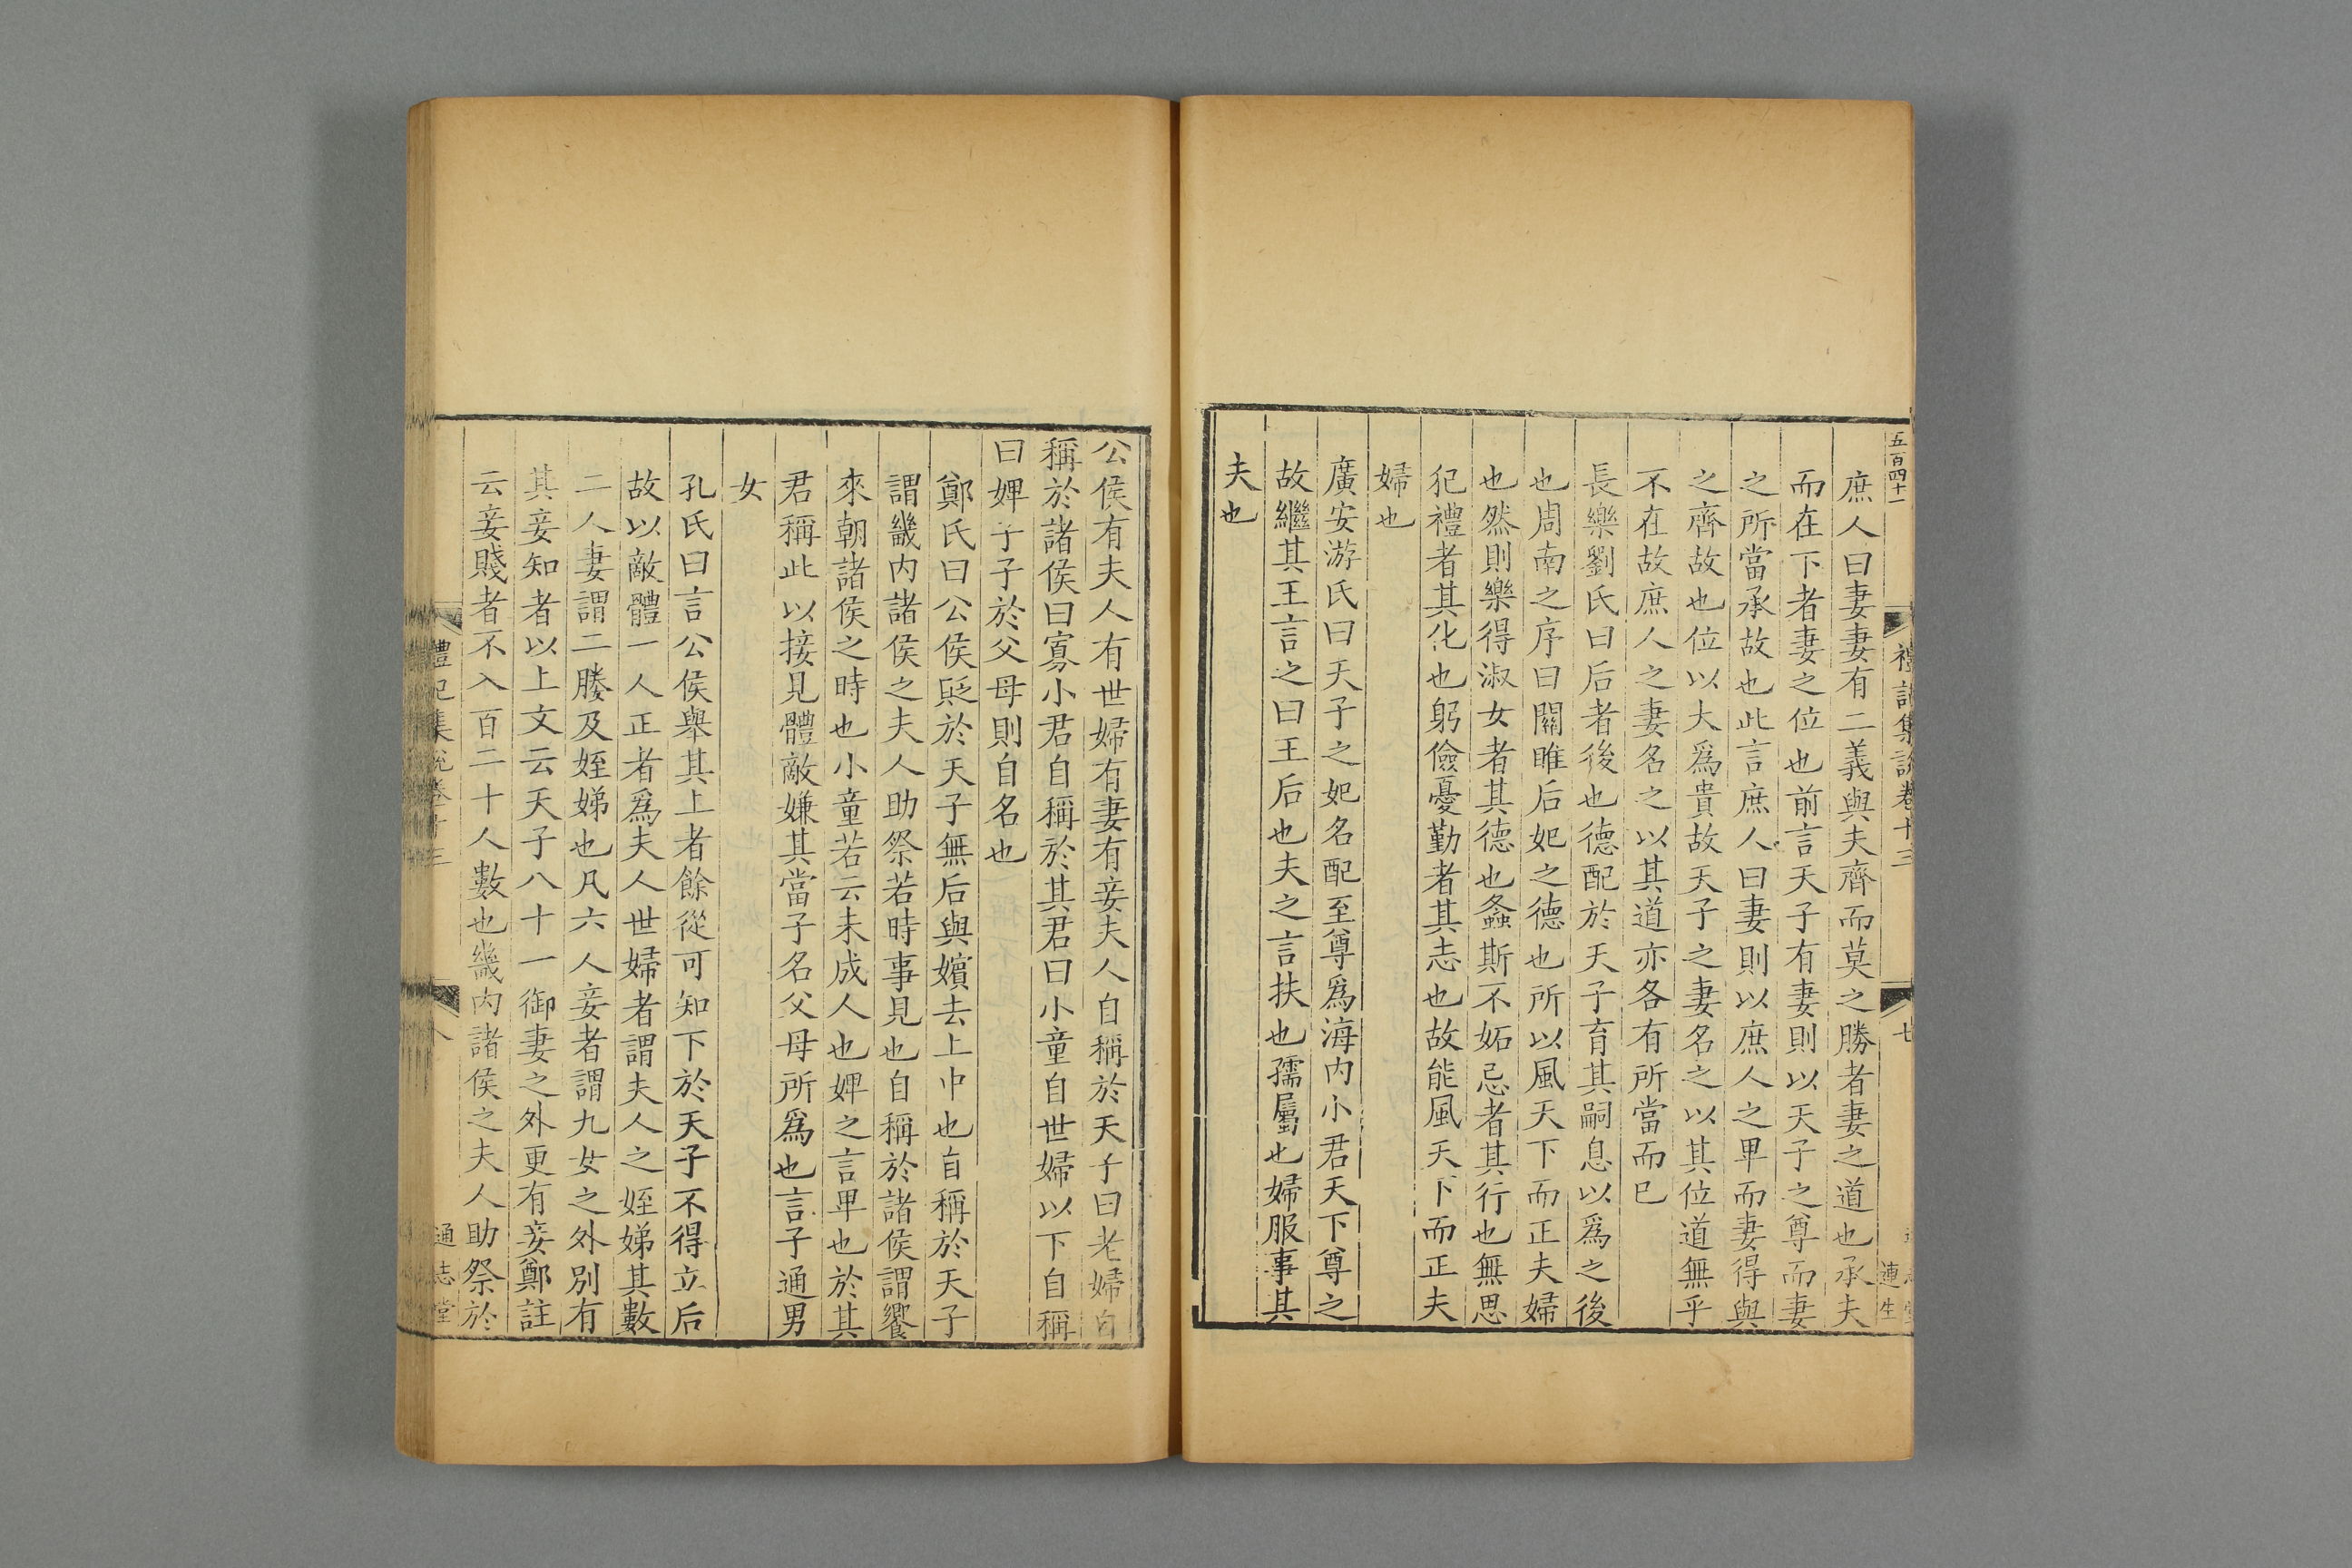 五百四十
禮記集說卷十三
七
連生
庶人曰妻妻有二義與夫齊而莫之勝者妻之道也承夫
而在下者妻之位也前言天子有妻則以天子之尊而妻
之所當承故也此言庶人曰妻則以庶人之卑而妻得與
之齊故也位以大爲貴故天子之妻名之以其位道無乎
不在故庶人之妻名之以其道亦各有所當而已
長樂劉氏曰后者後也德配於天子育其嗣息以爲之後
也周南之序曰關雎后妃之德也所以風天下而正夫婦
也然則樂得淑女者其德也螽斯不妬忌者其行也無思
犯禮者其化也躬儉憂勤者其志也故能風天下而正夫
婦也
廣安游氏曰天子之妃名配至尊爲海内小君天下尊之
故繼其王言之曰王后也夫之言扶也孺屬也婦服事其
夫也
公侯有夫人有世婦有妻有妾夫人自稱於天子曰老婦自
稱於諸侯曰寡小君自稱於其君曰小童自世婦以下自稱
曰婢子子於父母則自名也
鄭氏曰公侯貶於天子無后與嬪去上中也自稱於天子
謂畿内諸侯之夫人助祭若時事見也自稱於諸侯謂饗
來朝諸侯之時也小童若云未成人也婢之言卑也於其
君稱此以接見體敵嫌其當子名父母所爲也言子通男
女
孔氏曰言公侯舉其上者餘從可知下於天子不得立后
故以敵體一人正者爲夫人世婦者謂夫人之姪娣其數
二人妻謂二媵及姪娣也凡六人妾者謂九女之外別有
其妾知者以上文云天子八十一御妻之外更有妾鄭註
云妾賤者不入百二十人數也畿内諸侯之夫人助祭於
禮記集說卷十三
八
通志堂